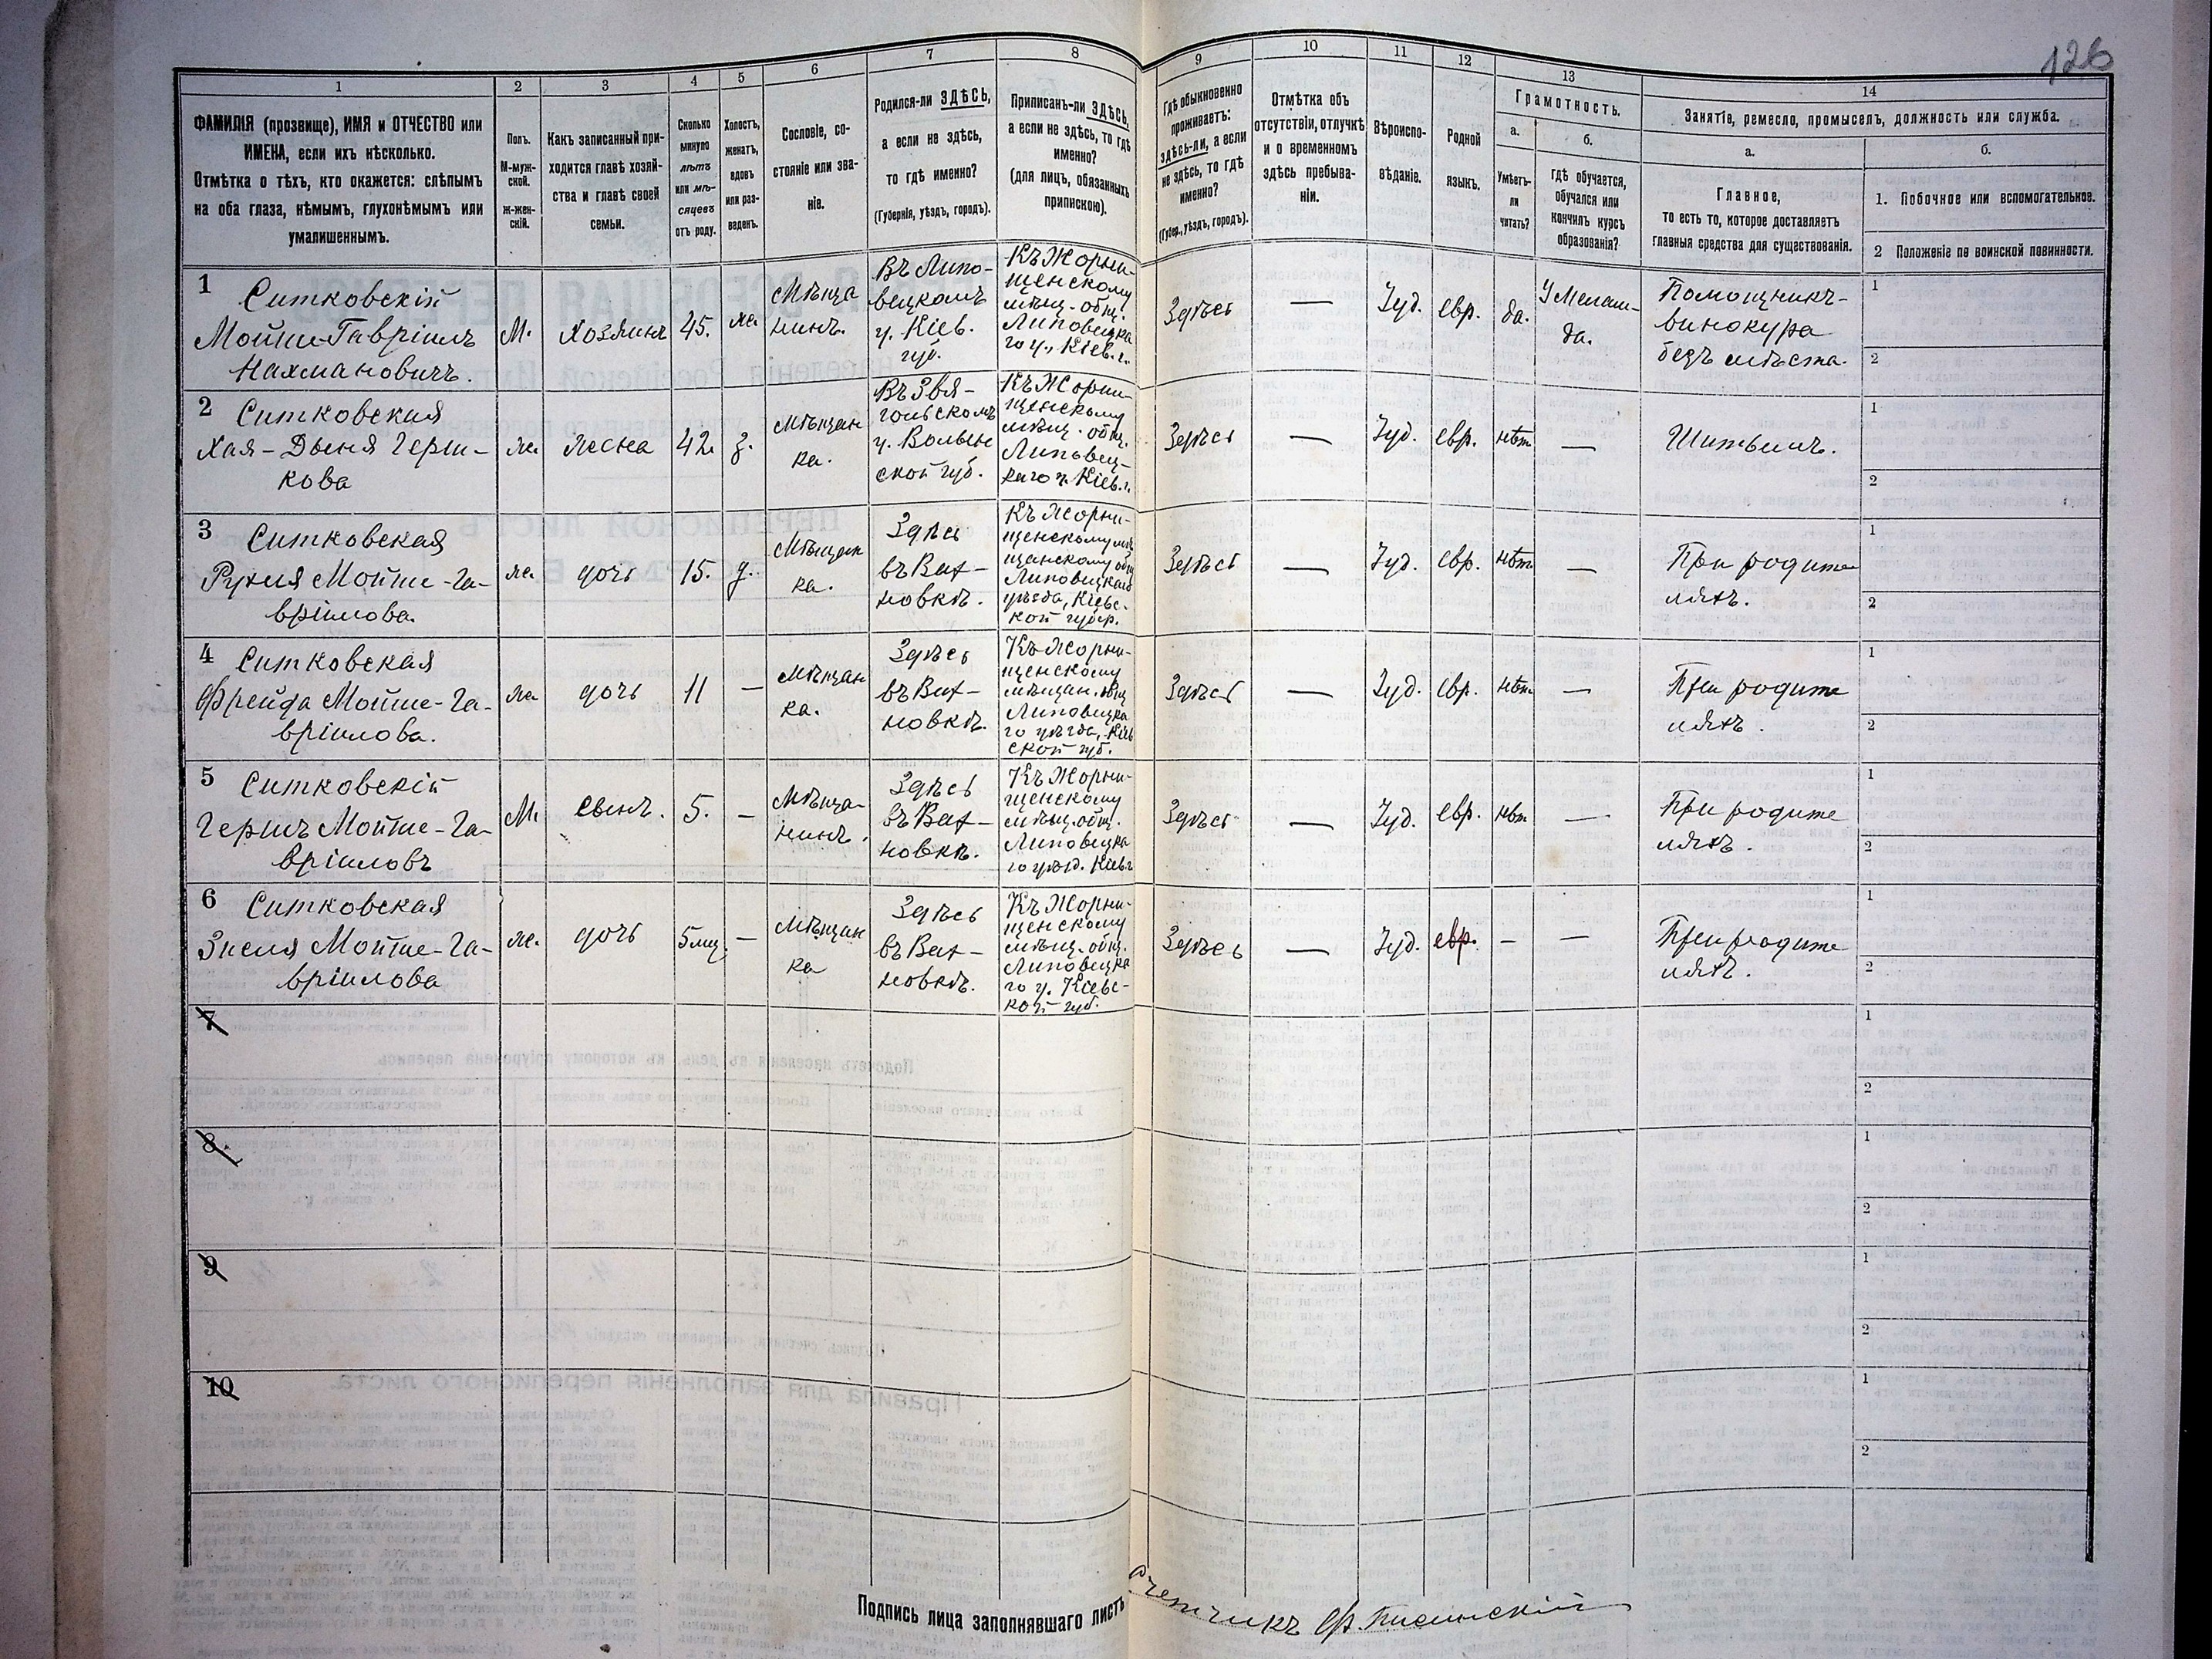 126
1 2 3 4 5 6 7 8 9 10 11 12 13 14
ФАМИЛІЯ (прозвище), ИМЯ и ОТЧЕСТВО или
ИМЕНА, если ихъ нѣсколько.
Отмѣтка о тѣхъ, кто окажется: слѣпымъ
на оба глаза, нѣмымъ, глухонѣмымъ или
умалишеннымъ.
Полъ.
М-муж-
ской.
Ж-жен-
скій.
Какъ записанный при-
ходится главѣ хозяй-
ства и главѣ своей
семьи.
Сколько
минуло
лѣтъ
или мѣ-
сяцевъ
отъ роду.
Холостъ,
женатъ,
вдовъ
или раз-
веденъ.
Сословіе, со-
стояніе или зва-
ніе.
Родился-ли ЗДѢСЬ,
а если не здѣсь,
то гдѣ именно?
(Губернія, уѣздъ, городъ).
Приписанъ-ли ЗДѢСЬ,
а если не здѣсь, то гдѣ
именно?
(для лицъ, обязанныхъ
припискою).
Гдѣ обыкновенно
проживаетъ:
здѣсь-ли, а если
не здѣсь, то гдѣ
именно?
(Губер., уѣздъ, городъ).
Отмѣтка объ
отсутствіи, отлучкѣ
и о временномъ
здѣсь пребыва-
ніи.
Вѣроиспо-
вѣданіе.
Родной
языкъ.
Грамотность.
а.
Умѣетъ-
ли
читать?
б.
гдѣ обучается,
обучался или
кончилъ курсъ
образованія?
Занятіе, ремесло, промыселъ, должность или служба.
а.
Главное,
то есть то, которое доставляетъ
главныя средства для существованія.
б.
1. Побочное или вспомогательное.
2 Положеніе по воинской повинности.
1
Ситковскій
Мойше-Гавріилъ
Нахмановичъ.
М.
Хозяинъ
45.
ж.
Мѣща
нинъ.
Въ Липо-
вецкомъ
у. Кіев.
губ.
Къ Жорни-
щенскому
мѣщ. общ.
Липовецка
го у., Кіев. г.
Здѣсь
—
Іуд.
евр.
да.
У Мелам-
да.
Помощникъ-
винокура
безъ мѣста.
1
2
2
Ситковская
Хая-Двеня Герш-
кова
ж.
жена
42
з.
мѣщан
ка.
Въ Звя-
гольскомъ
у. Волын
ской губ.
Къ Жорни-
щенскому
мѣщ. общ.
Липовец-
каго у. Кіев. г.
Здѣсь
—
Іуд.
евр.
нѣт
—
Шитьемъ.
1
2
3
Ситковская
Рухля Мойше-Га-
вріилова.
ж.
дочь
15.
д.
Мѣщан
ка.
Здѣсь
въ Вах-
новкѣ.
Къ Жорни-
щенскому мѣ
щанскому общ
Липовецкаго
уѣзда, Кіевс-
кой губер.
Здѣсь
—
Іуд.
евр.
нѣт
—
При родите
ляхъ.
1
2
4
Ситковская
Фрейда Мойше-Га-
вріилова.
ж.
дочь
11
—
Мѣщан
ка.
Здѣсь
въ Вах-
новкѣ.
Къ Жорни-
щенскому
мѣщан. общ
Липовецка
го уѣзда, Кіев
ской губ.
Здѣсь
—
Іуд.
евр.
нѣт
—
При родите
ляхъ.
1
2
5
Ситковскій
Гершъ Мойше-Га-
вріиловъ
М.
сынъ.
5.
—
Мѣща-
нинъ.
Здѣсь
въ Вах-
новкѣ.
Къ Жорни-
щенскому
мѣщ. общ.
Липовецка
го уѣзд. Кіев г
Здѣсь
—
Іуд.
евр.
нѣт
—
При родите
ляхъ.
1
2
6
Ситковская
Зиселя Мойше-Га-
вріилова
ж.
дочь
5 мц.
—
Мѣщан
ка
Здѣсь
въ Вах-
новкѣ.
Къ Жорни-
щенскому
мѣщ. общ.
Липовецка
го у. Кіевс-
кой губ.
Здѣсь
—
Іуд.
евр.
—
—
При родите
ляхъ.
1
2
7
1
2
8
1
2
9
1
2
10
1
2
Подпись лица заполнявшаго листъ Счетчикъ